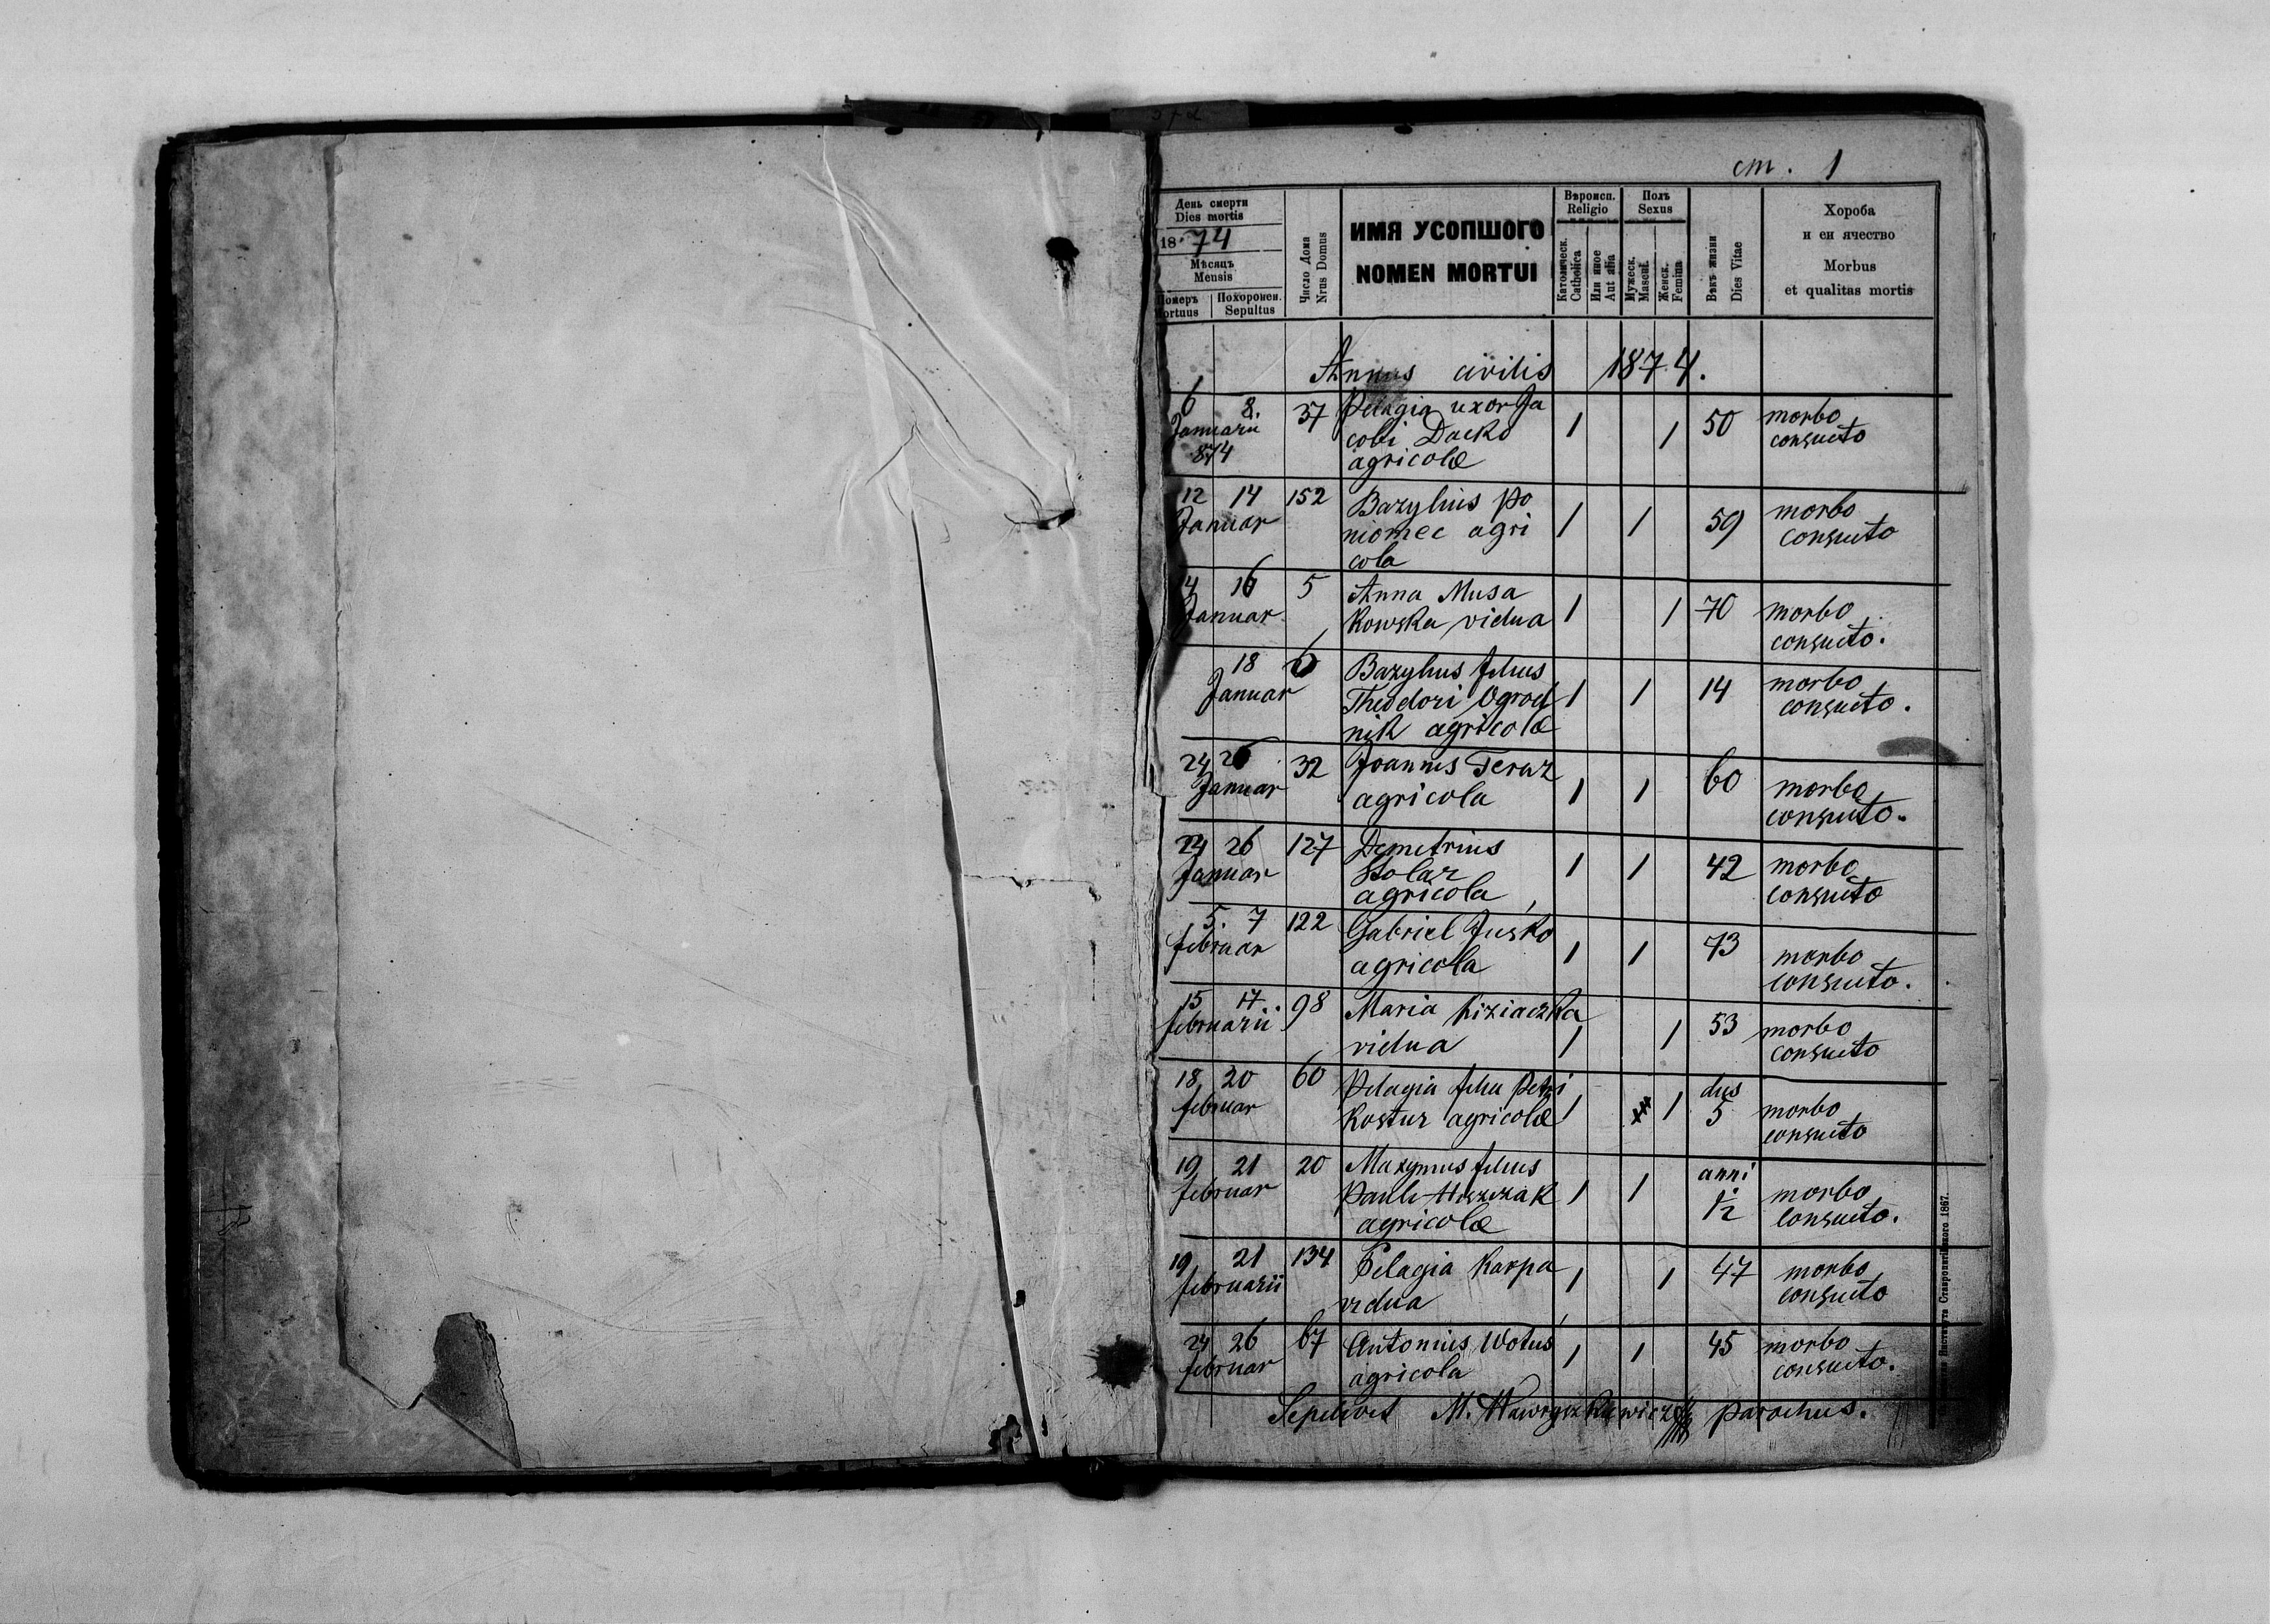 ст. 1
День смерти
Dies mortis
1874
Мѣсяць
Mensis
Похоронен.
Sepultus
Число Дома
Nrus Domus
ИМЯ УСОПШОГО
NOMEN MORTUI
Вѣроисп.
Religio
Католическ.
Catholica
Или иное
Aut alia
Полъ
Sexus
Мужеск.
Mascul.
Женск.
Femina
Вѣкъ жизни
Dies Vitae
Хороба
и еи ячество
Morbus
et qualitas mortis
Annus civilis 1874.
6 8. 37 Pelagia uxor Ja
Januarii cobi Dacko 1 1 50 morbo
874 agricolæ consueto
12 14 152 Bazylius Po
Januar niomec agri 1 1 59 morbo
cola consueto
14 16 5 Anna Musa
Januar kowska vidua 1 1 70 morbo
consueto.
18 6 Bazylius filius
Januar Theodori Ogrod 1 1 14 morbo
nik agricolæ consueto.
24 26 32 Joannes Teraz
Januar agricola 1 1 60 morbo
consueto.
24 26 127 Demetrius
Januar Stolar 1 1 42 morbo
agricola consueto
5. 7 122 Gabriel Jusko
februar agricola 1 1 73 morbo
consueto.
15 17. 98 Maria Kiziaczka
februarii vidua 1 1 53 morbo
consueto
18 20 60 Pelagia filia Petri dies
februar Kostur agricolæ 1 1 5 morbo
consueto
19 21 20 Maxymus filius anni
februar Pauli 1 1 1/2 morbo
agricolæ consueto.
19 21 134 Pelagia Karpa 1 1 47 morbo
februarii vidua consueto
24 26 67 Antonius Wotus 1 1 45 morbo
februar agricola consueto.
Sepelivit M. Hawryszkiewicz parochus.
Института Ставропигійского 1867.